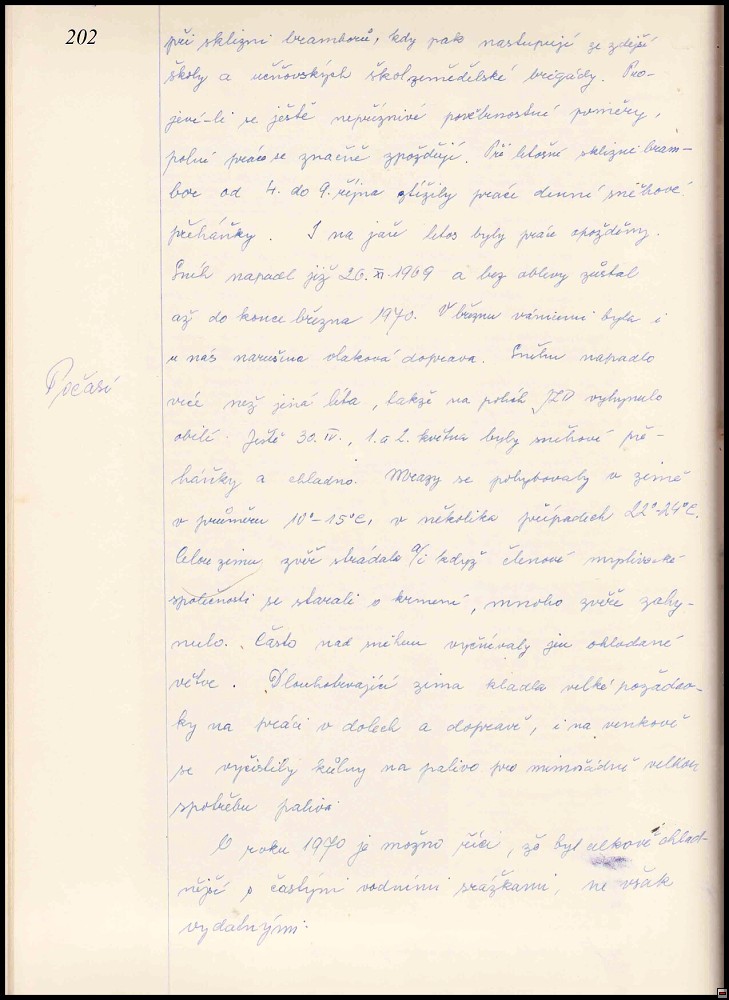 202
při sklizni bramborů, kdy pak nastupují ze zdejší
školy a učňovských škol zemědělské brigády. Pro-
jeví-li se ještě nepříznivé povětrnostní poměry,
polní práce se značně zpožďují. Při letošní sklizni bram-
bor od 4. do 9. října ztížily práce denní sněhové
přeháňky. I na jaře letos byly práce opožděny.
Sníh napadl již 26. XI. 1969 a bez oblevy zůstal
až do konce března 1970. V březnu vánicemi byla i
u nás narušena vlaková doprava. Sněhu napadlo
Počasí
více než jiná léta, takže na polích JZD vyhynulo
obilí. Ještě 30. IV., 1. a 2. května byly sněhové pře-
háňky a chladno. Mrazy se pohybovaly v zimě
v průměru 10°-15°C, v několika případech 22°-24°C.
Celou zimu zvěř strádala a i když členové myslivecké
společnosti se starali o krmení, mnoho zvěře zahy-
nulo. Často nad sněhem vyčnívaly jen ohlodané
větve. Dlouhotrvající zima kladla velké požadav-
ky na práci v dolech a dopravě, i na venkově
se vyčistily kůlny na palivo pro mimořádně velkou
spotřebu paliva.
O roku 1970 je možno říci, že byl celkově chlad-
nější s častými vodními srážkami, ne však
vydatnými.